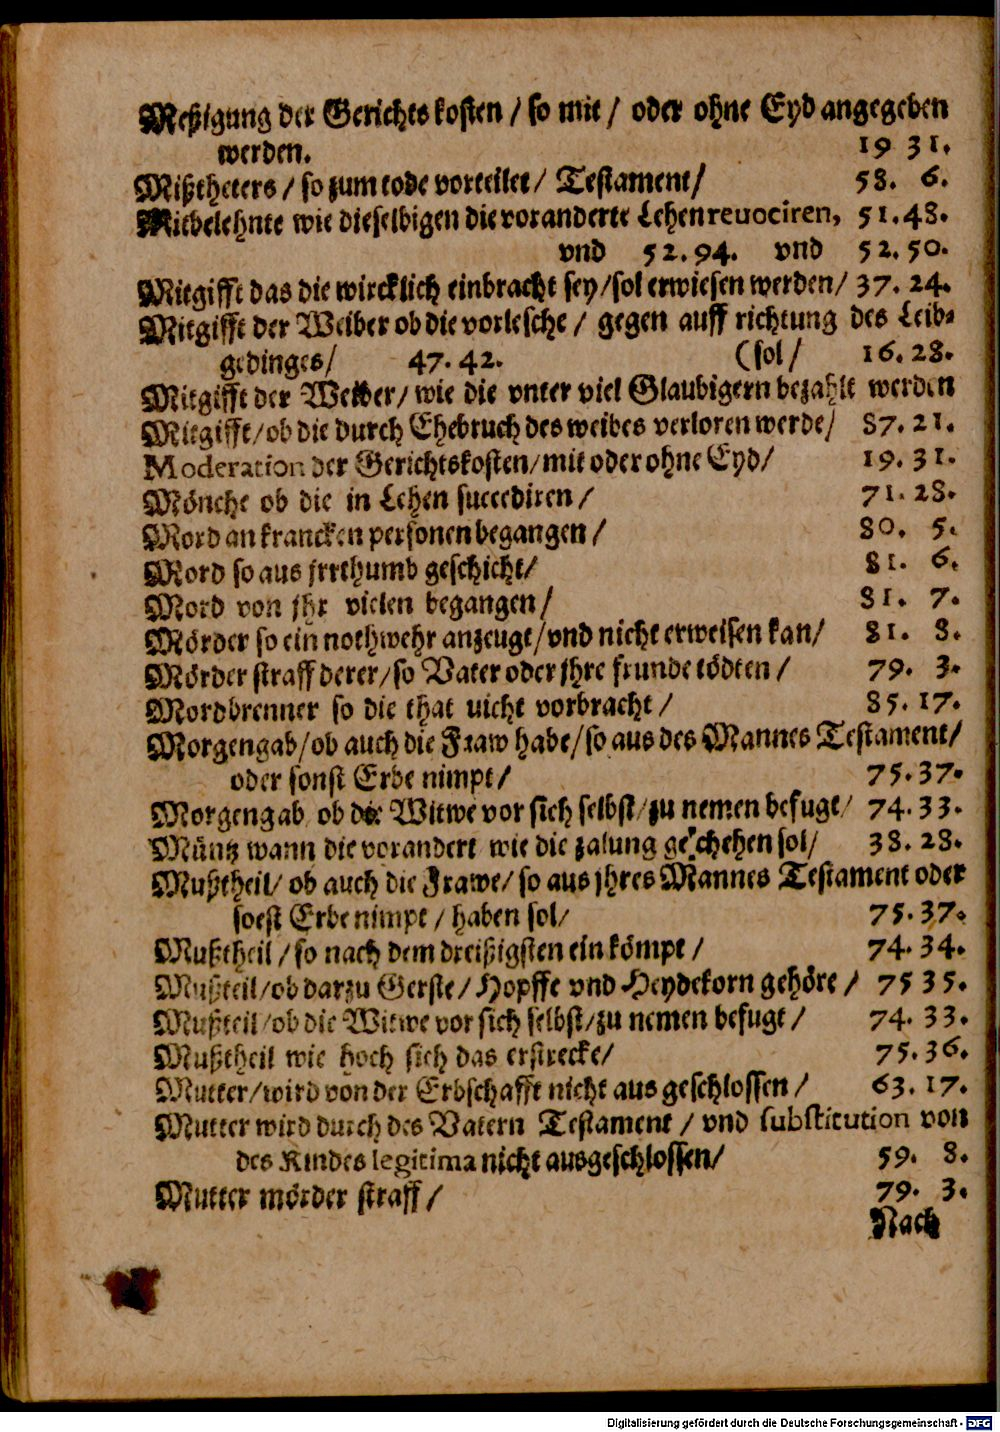 Meßigung der Gerichtskosten / so mit / oder ohne Eyd angegeben
werden. 19 31.
Mißtheters / so zum tode vorteilet / Testament / 58. 6.
Mitbelehnte wie dieselbigen die voranderte Lehen reuociren, 51.48.
vnd 52.94. vnd 52.50.
Mitgifft das die wircklich einbracht sey / sol erwiesen werden / 37. 24.
Mitgifft der Weiber ob die vorlesche / gegen auff richtung des Leib-
gedinges / 47. 42. (sol / 16. 28.
Mitgifft der Weiber / wie die vnter viel Glaubigern bezahlt werden
Mitgifft / ob die durch Ehebruch des weibes verloren werde / 87. 21.
Moderation der Gerichtskosten / mit oder ohne Eyd / 19. 31.
Mönche ob die in Lehen succediren / 71. 28.
Mord an krancken personen begangen / 80. 5.
Mord so aus jrrthumb geschicht / 81. 6.
Mord von jhr vielen begangen / 81. 7.
Mörder so ein nothwehr anzeugt / vnd nicht erweisen kan / 81. 8.
Mörder straff derer / so Vater oder jhre frunde tödten / 79. 3.
Mordbrenner so die that uicht vorbracht / 85. 17.
Morgengab / ob auch die Fraw habe / so aus des Mannes Testament /
oder sonst Erbe nimpt / 75. 37.
Morgengab ob die Witwe vor sich selbst / zu nemen befugt / 74. 33.
Müntz wann die vorandert wie die zalung geschehen sol / 38. 28.
Mußtheil / ob auch die Frawe / so aus jhres Mannes Testament oder
soest Erbe nimpt / haben sol / 75. 37.
Mußtheil / so nach dem dreißigsten ein kömpt / 74. 34.
Mußteil / ob darzu Gerste / Hopffe vnd Heydekorn gehöre / 75 35.
Mußteil / ob die Witwe vor sich selbst / zu nemen befugt / 74. 33.
Mußtheil wie hoch sich das erstrecke / 75. 36.
Mutter / wird von der Erbschafft nicht aus geschlossen / 63. 17.
Mutter wird durch des Vatern Testament / vnd substitution von
des Kindes legitima nicht ausgeschlossen / 59. 8.
Mutter mörder straff / 79. 3.
Nach
Digitalisierung gefördert durch die Deutsche Forschungsgemeinschaft - DFG